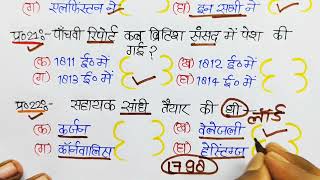 (ग) एलफिंस्टन ने (घ) इन सभी ने
प्र०21ः- पाँचवी रिपोर्ट कब ब्रिटिश संसद में पेश की
गई?
(क) 1811 ई० में (ख) 1812 ई० में
(ग) 1813 ई० में (घ) 1814 ई० में
प्र०22ः- सहायक संधि तैयार की थी - लार्ड
(क) कर्जन (ख) वेलेजली
(ग) कॉर्नवालिस (घ) हेस्टिंग्ज
1798